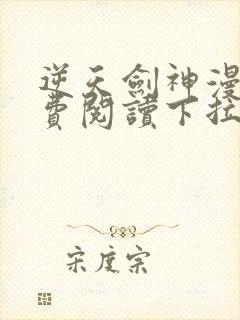 逆天劍神漫
費閱讀下拉
宋度宗